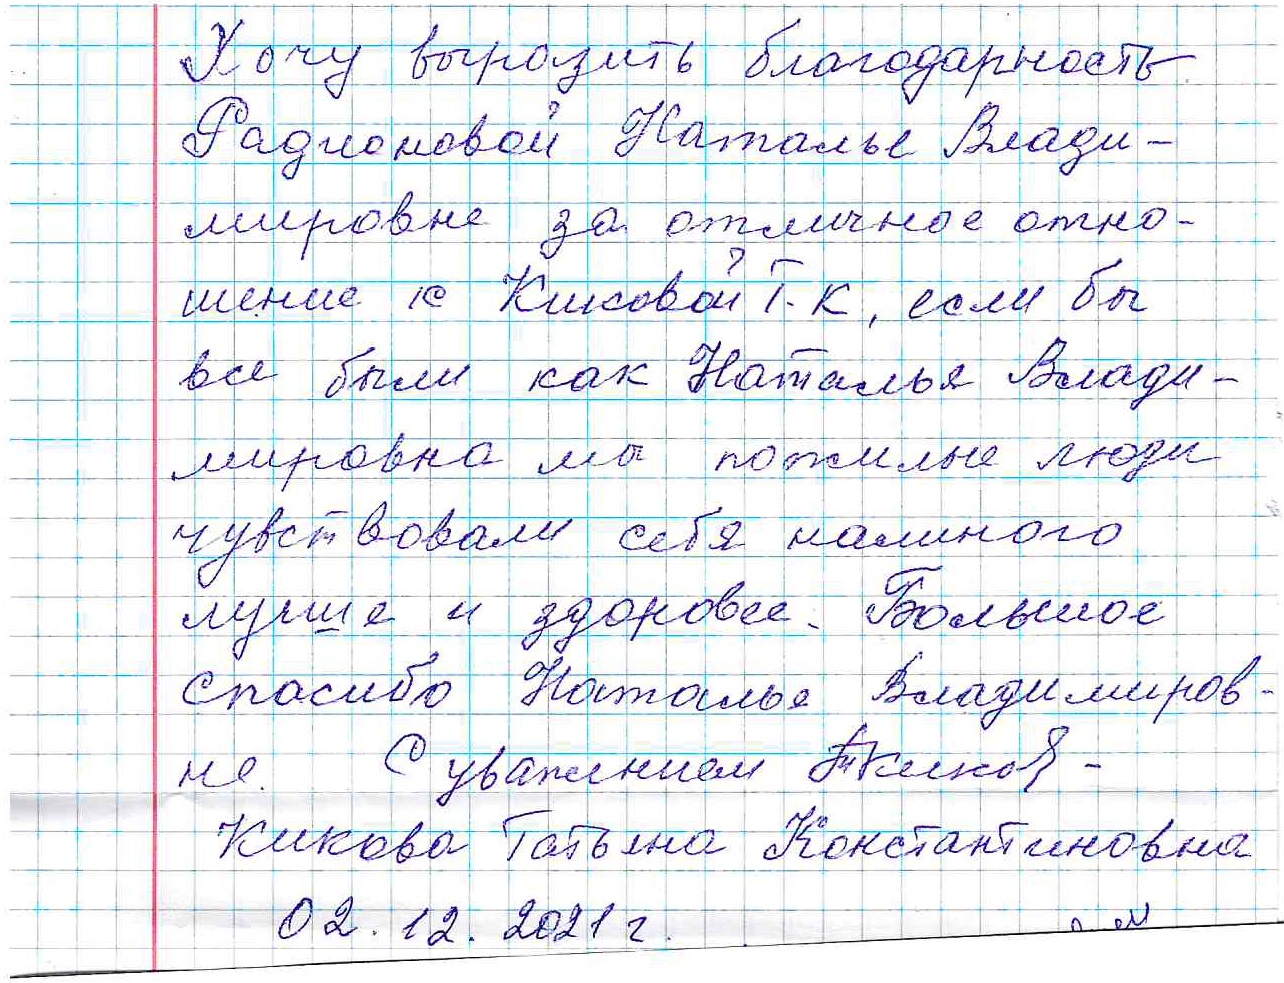 Хочу выразить благодарность
Радионовой Наталье Влади-
мировне за отличное отно-
шение к Киковой Т.К, если бы
все были как Наталья Влади-
мировна мы пожилые люди
чувствовали себя намного
лучше и здоровее. Большое
спасибо Наталье Владимиров-
не. С уважением
Кикова Татьяна Константиновна
02.12.2021г.